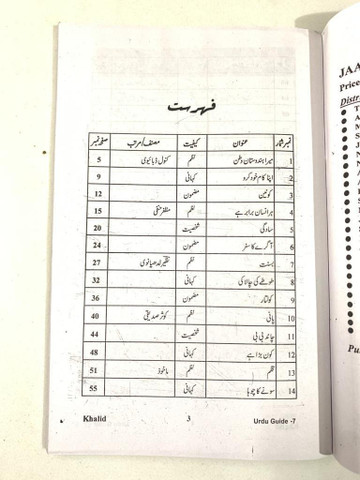 فہرست
نمبر شمار عنوان کیفیت مصنف/مرتب صفحہ نمبر
1 میرا ہندوستان وطن نظم کنول ڈبائیوی 5
2 اپنا کام خود کرو کہانی 9
3 کونین مضمون 12
4 ہر انسان برابر ہے نظم 15
5 سادگی شخصیت 20
6 آگرے کا سفر مضمون 24
7 بسنت نظم 27
8 طوطے کی چالاکی کہانی 32
9 کولتار مضمون 36
10 پانی نظم کوثر صدیقی 40
11 چاند بی بی شخصیت 44
12 کون بڑا ہے کہانی 48
13 قلم نظم ماخوذ 51
14 سونے کا چوہا کہانی 55
Khalid 3 Urdu Guide -7
JAA
Price
Distri
Pu